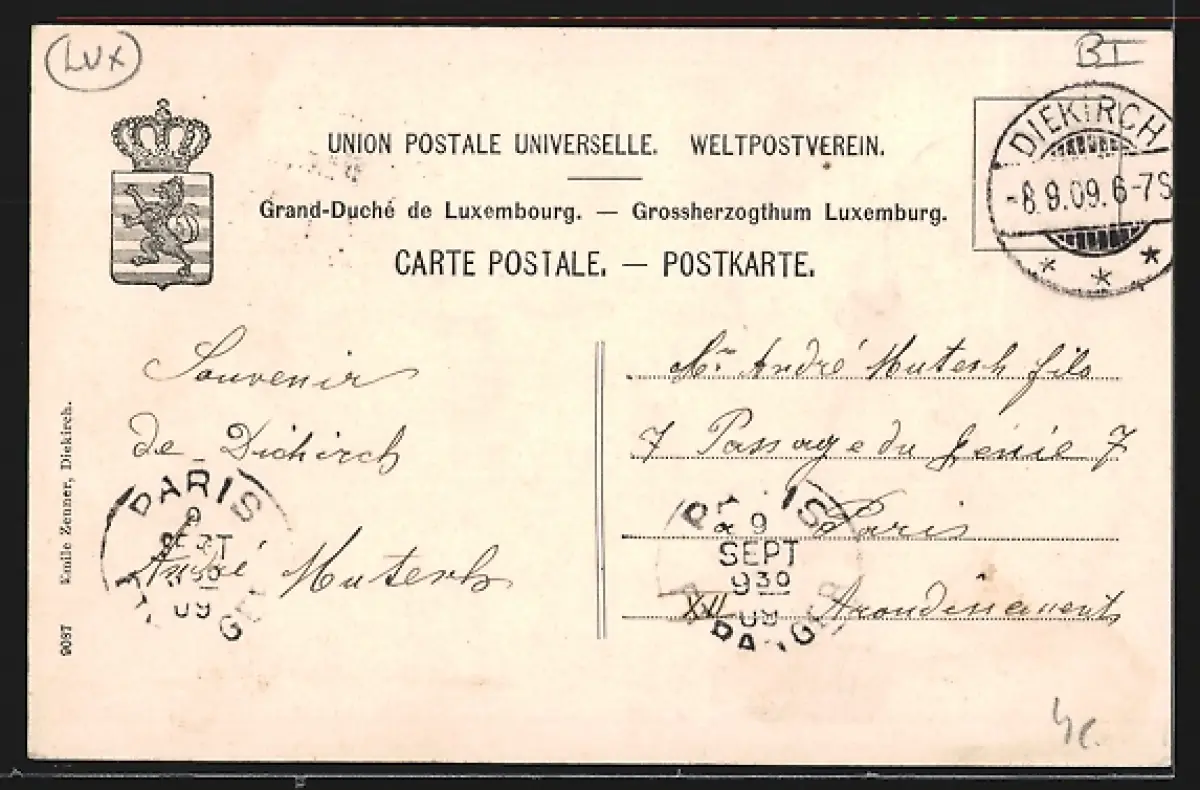 LUX
BI
UNION POSTALE UNIVERSELLE. WELTPOSTVEREIN.
Grand-Duché de Luxembourg. — Grossherzogthum Luxemburg.
CARTE POSTALE. — POSTKARTE.
DIEKIRCH
-8.9.09.6-7S
* * *
Souvenir
de Diekirch
André Mutersh
Mr. André Mutersh fils
7 Passage du Génie 7
Paris
XII Arondissement
PARIS
9
SEPT
09
PARIS
9
SEPT
9 30
09
ETRANGER
9087 Emile Zenner, Diekirch.